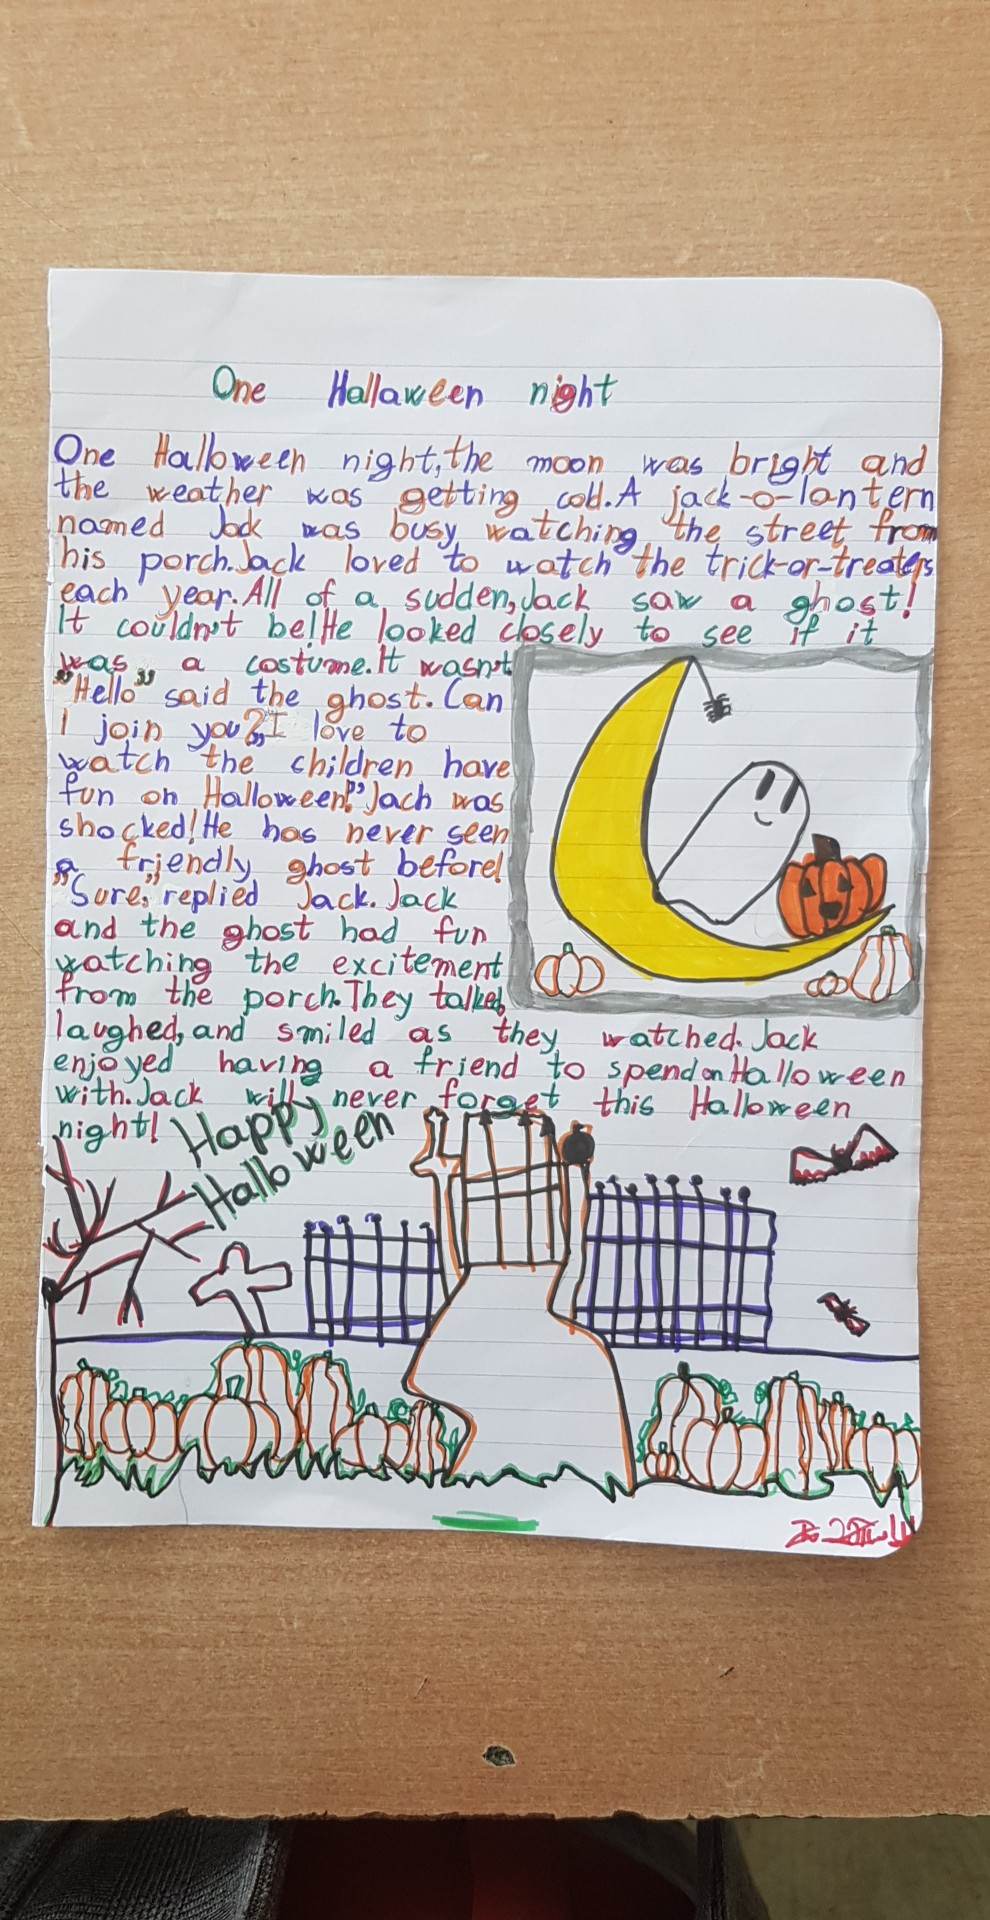 One Hallaween night
One Halloween night, the moon was bright and
the weather was getting cold. A jack-o-lantern
named Jack was busy watching the street from
his porch. Jack loved to watch the trick-or-treaters
each year. All of a sudden, Jack saw a ghost!
It couldn't be! He looked closely to see if it
was a costume. It wasn't
"Hello" said the ghost. Can
I join you? I love to
watch the children have
fun on Halloween!" Jach was
shocked! He has never seen
a friendly ghost before!
"Sure," replied Jack. Jack
and the ghost had fun
watching the excitement
from the porch. They talked,
laughed, and smiled as they watched. Jack
enjoyed having a friend to spend on Halloween
with. Jack will never forget this Halloween
night!
Happy
Halloween